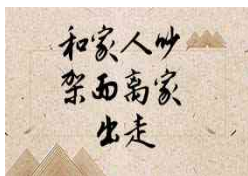 和家人吵
架而离家
出走